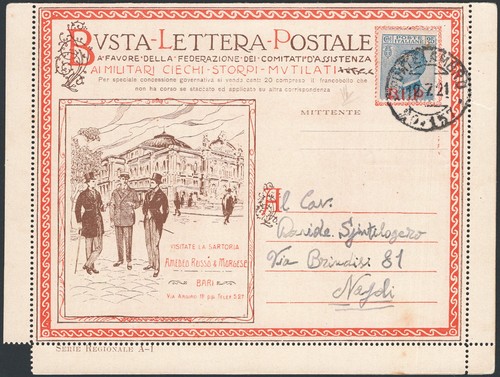 BVSTA-LETTERA-POSTALE
A FAVORE DELLA FEDERAZIONE DEI COMITATI D'ASSISTENZA
AI MILITARI CIECHI-STORPI-MVTILATI
Per speciale concessione governativa si vende cent. 20 compreso il francobollo che
non ha corso se staccato ed applicato su altra corrispondenza
18.7.21
MITTENTE
Al Cav.
Davide
Via Brindisi 81
Napoli
VISITATE LA SARTORIA
AMEDEO ROSSO & MARGESE
BARI
VIA
SERIE REGIONALE A-I